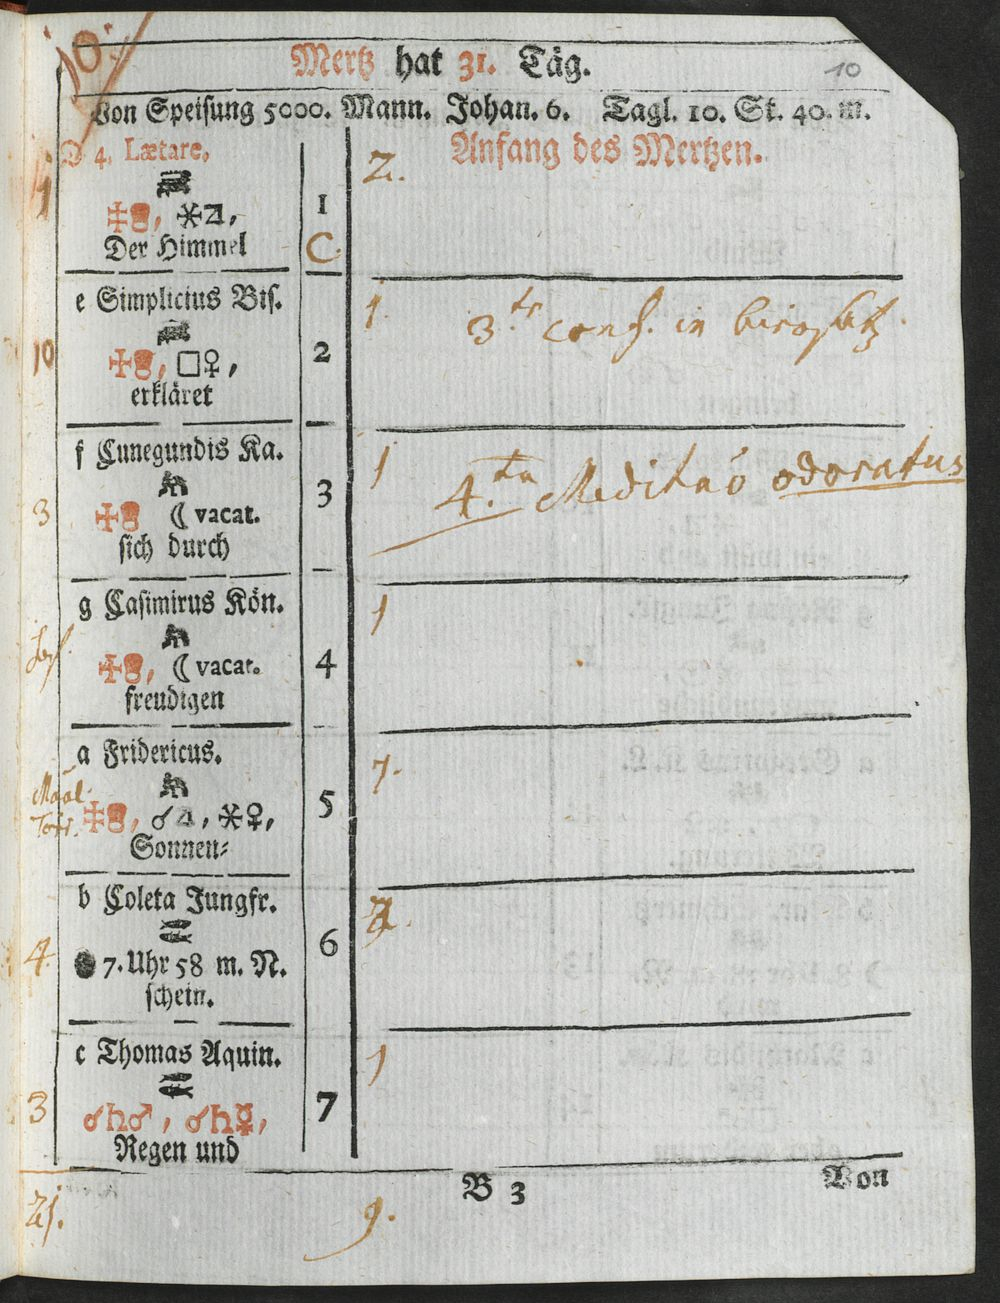 10.
Mertz hat 31. Täg.
10
Von Speisung 5000. Mann. Johan. 6. Tagl. 10. St. 40. m.
D 4. Lætare,
2.
Anfang des Mertzen.
1
1
Der Himmel
C.
e Simplicius Bis.
1.
3
conf. in
10
□♀,
2
erkläret
f Cunegundis Ka.
1
4.
odoratus
3
☾ vacat.
3
sich durch
g Casimirus Kön.
1
☾ vacat.
4
freudigen
a Fridericus.
1.
5
Sonnen⸗
b Coleta Jungfr.
4.
7. Uhr 58 m. N.
6
schein.
c Thomas Aquin.
1
3
☌♄♂, ☌♄☿,
7
Regen und
B 3
Von
21.
9.